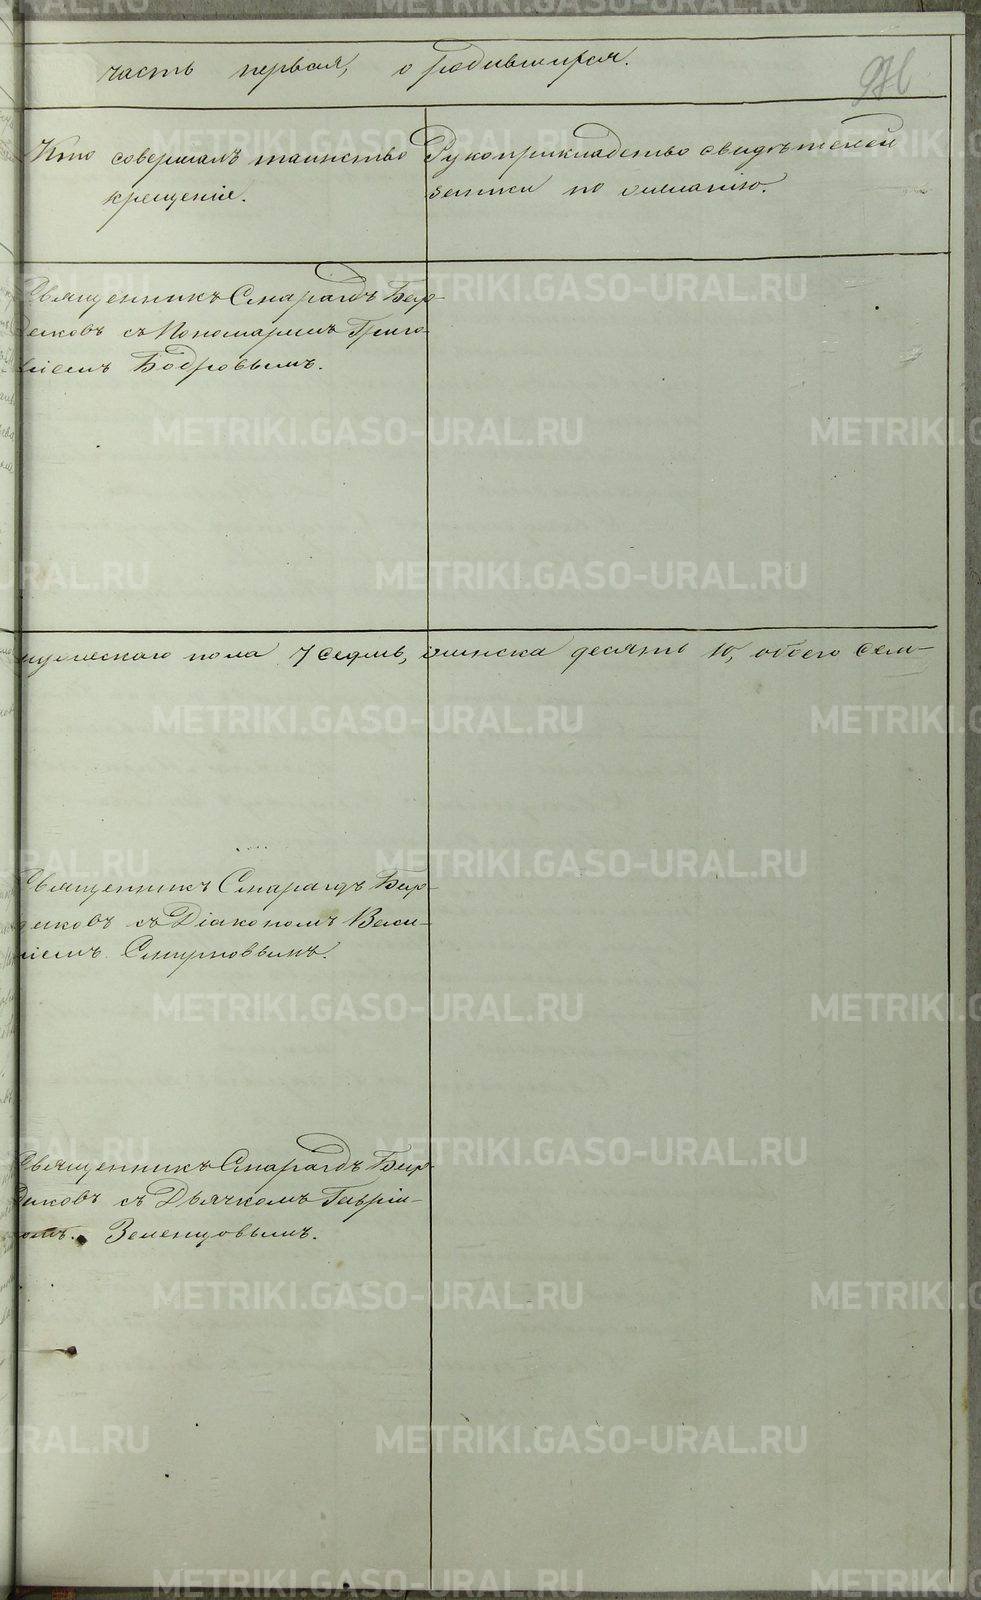 часть первая, о родившихся.
Кто совершалъ таинство
крещенія.
Рукоприкладство свидѣтелей
записи по желанію.
Священникъ Смарагдъ Бир-
юковъ съ Пономаремъ Григо-
ріемъ Бодровымъ.
мужескаго пола 7 седмь, женска десять 10, обоего сем-
Священникъ Смарагдъ Бир-
юковъ съ Діакономъ Васи-
ліемъ Смирновымъ.
Священникъ Смарагдъ Бир-
юковъ съ Дьячкомъ Гаврі-
ломъ. Земенцовымъ.
METRIKI.GASO-URAL.RU